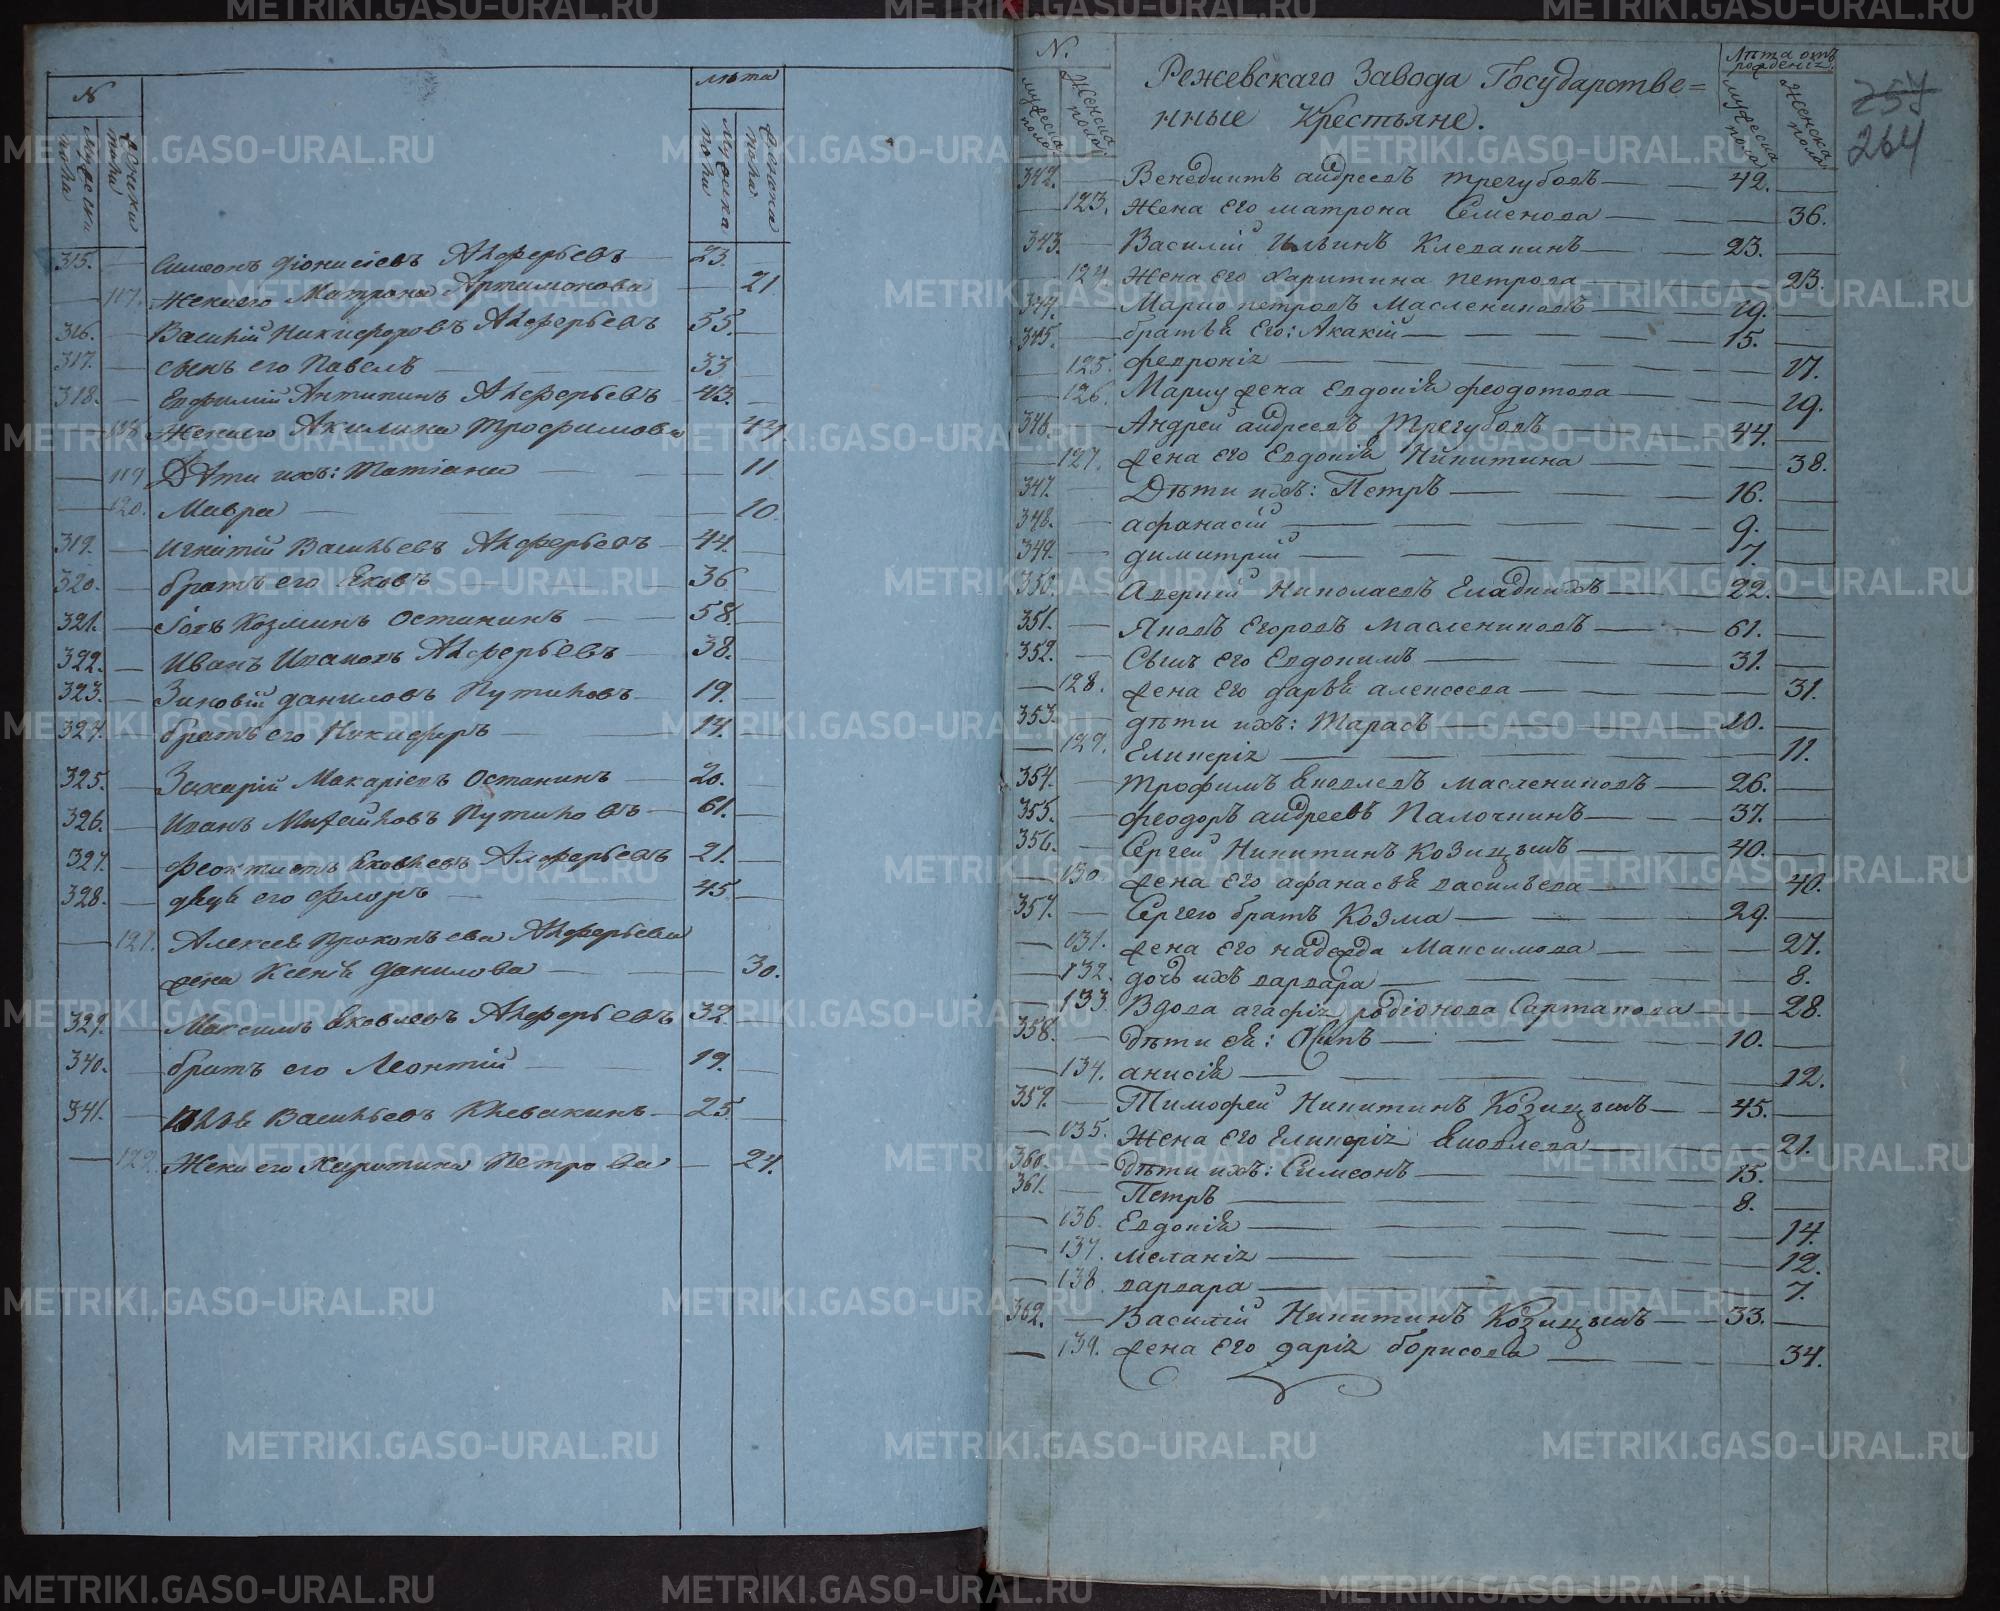 №
лѣта
мужеска пола
женска пола
мужеска пола
женска пола
315. Симеонъ Діонисіевъ Алферьевъ 23.
117. Жена его Матрона Артимонова 21
316. Василій Никифоровъ Алферьевъ 55.
317. сынъ его Павелъ 33
318. Евфимій Антипинъ Алферьевъ 43.
118. Жена его Акилина Трофимова 44
119 Дѣти ихъ: Татіана 11
120. Мавра 10.
319. Игнатій Васильевъ Алферьевъ 44.
320. братъ его Яковъ 36
321. Іовъ Козминъ Останинъ 58.
322. Иванъ Ивановъ Алферьевъ 38.
323. Зиновій Даниловъ Путиловъ 19.
324. братъ его Никифоръ 17.
325. Захарій Макаріевъ Останинъ 20.
326. Иванъ Михайловъ Путиловъ 61.
327. Феоктистъ Яковлевъ Алферьевъ 21.
328. дядя его Флоръ 45
121. Алексея Прокопьева Алферьева
жена Ксенія Данилова 30.
329. Максимъ Яковлевъ Алферьевъ 32.
340. братъ его Леонтій 19.
341. Васильевъ Клевакинъ 25
122. Жена его Харитина Петрова 24.
№.
мужеска пола
Женска пола
Режевскаго Завода Государстве=
нные Крестьяне.
Лѣта отъ рожденія.
мужеска пола
Женска пола
254
264
342. Венедиктъ андреевъ трегубовъ 42.
123. Жена Его матрона Семенова 36.
343. Василій Ильинъ Клевакинъ 23.
124. Жена Его харитина петрова 23.
344. Марко петровъ Маслениковъ 19.
345. братья Его: Акакій 15.
125. февронія 17.
126. Марку жена Евдокія феодотова 19.
346. Андрей андреевъ Трегубовъ 44.
127. жена Его Евдокія Никитина 38.
347. Дѣти ихъ: Петръ 16.
348. афанасій 9.
349. димитрій 7.
350. Аверкій Николаевъ Гладкихъ 22.
351. Яковъ Егоровъ Маслениковъ 61.
352. Сынъ Его Евдокимъ 31.
128. жена Его дарья алексеева 31.
353. дѣти ихъ: Тарасъ 10.
129. Гликерія 11.
354. Трофимъ Яковлевъ Маслениковъ 26.
355. феодоръ андреевъ Палочкинъ 37.
356. Сергей Никитинъ Козицынъ 40.
130. жена Его афанасья васильева 40.
357. Сергею братъ Козма 29.
131. жена Его надежда Максимова 27.
132. дочь ихъ варвара 8.
133. Вдова агафія родіонова Сартакова 28.
358. Дѣти ея: Осипъ 10.
134. анисія 12.
359. Тимофей Никитинъ Козицынъ 45.
135. Жена Его Гликерія Яковлева 21.
360. Дѣти ихъ: Симеонъ 15.
361. Петръ 8.
136. Евдокія 14.
137. меланія 12.
138 варвара 7.
362. Василій Никитинъ Козицынъ 33.
139. жена Его дарія борисова 34.